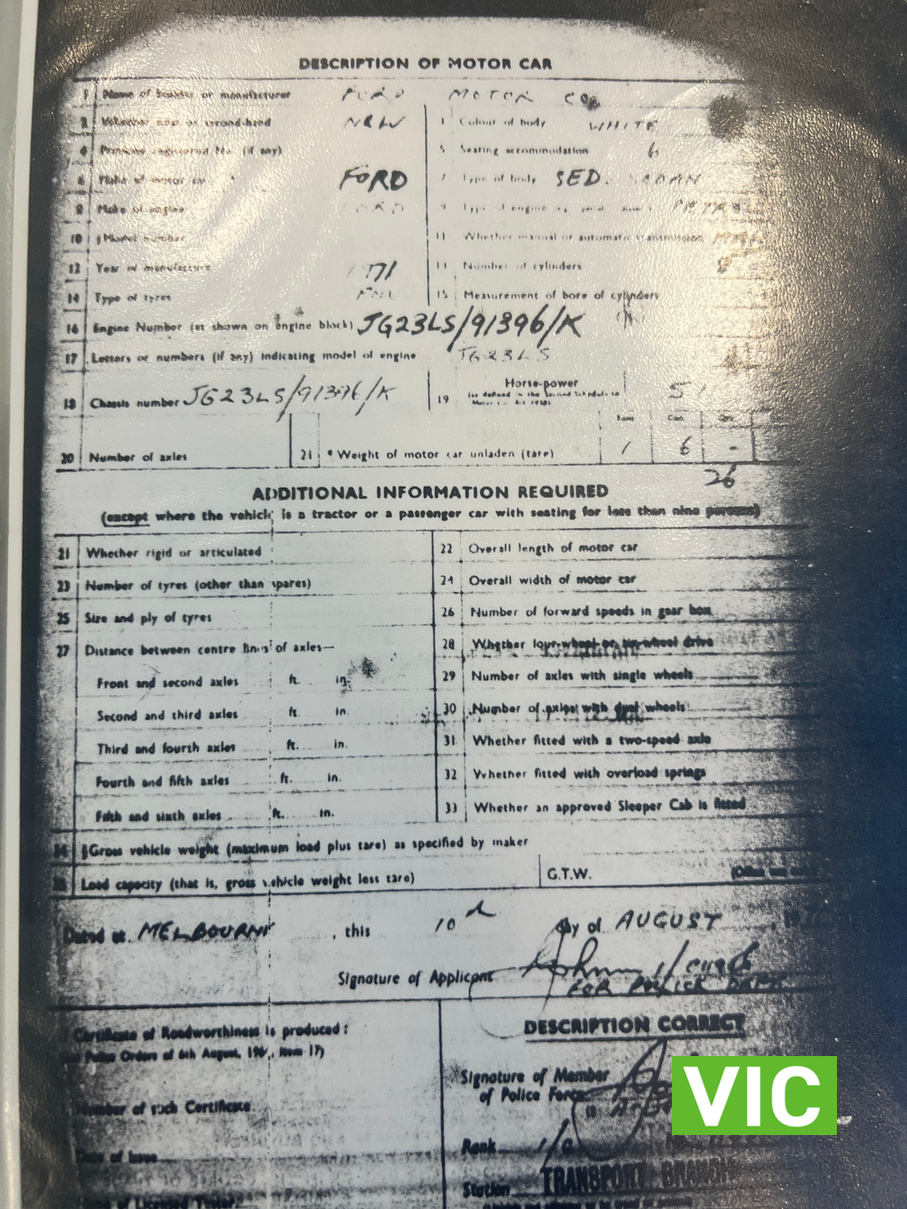 DESCRIPTION OF MOTOR CAR
1 Name of builder or manufacturer FORD MOTOR CO.
2 Whether new or second-hand NEW
3 Colour of body WHITE
4 Previous registered No. (if any)
5 Seating accommodation 6
6 Make of motor car FORD
7 Type of body SED. SEDAN
8 Make of engine FORD
9 Type of engine PETROL
10 §Model number
11 Whether manual or automatic transmission
12 Year of manufacture 1971
13 Number of cylinders 8
14 Type of tyres
15 Measurement of bore of cylinders
16 Engine Number (as shown on engine block) JG23LS/91396/K
17 Letters or numbers (if any) indicating model of engine JG23LS
18 Chassis number JG23LS/91396/K
19 Horse-power
(as defined in the Second Schedule to
Motor Car Act 1958)
Tons Cwt. Qrs.
20 Number of axles
21 * Weight of motor car unladen (tare) 1 6 -
26
ADDITIONAL INFORMATION REQUIRED
(except where the vehicle is a tractor or a passenger car with seating for less than nine persons)
21 Whether rigid or articulated
22 Overall length of motor car
23 Number of tyres (other than spares)
24 Overall width of motor car
25 Size and ply of tyres
26 Number of forward speeds in gear box
27 Distance between centre lines of axles—
28 Whether four-wheel or six-wheel drive
Front and second axles ft. in.
29 Number of axles with single wheels
Second and third axles ft. in.
30 Number of axles with dual wheels
Third and fourth axles ft. in.
31 Whether fitted with a two-speed axle
Fourth and fifth axles ft. in.
32 Whether fitted with overload springs
Fifth and sixth axles ft. in.
33 Whether an approved Sleeper Cab is fitted
34 §Gross vehicle weight (maximum load plus tare) as specified by maker
35 Load capacity (that is, gross vehicle weight less tare)
G.T.W.
Dated at MELBOURNE, this 10th day of AUGUST
Signature of Applicant
FOR POLICE DEPT.
Certificate of Roadworthiness is produced:
Police Orders of 6th August, 196 , Item 17)
DESCRIPTION CORRECT
Signature of Member
of Police Force
Number of such Certificate
Rank
Date of Issue
Station TRANSPORT BRANCH
of Licensed Tester
VIC